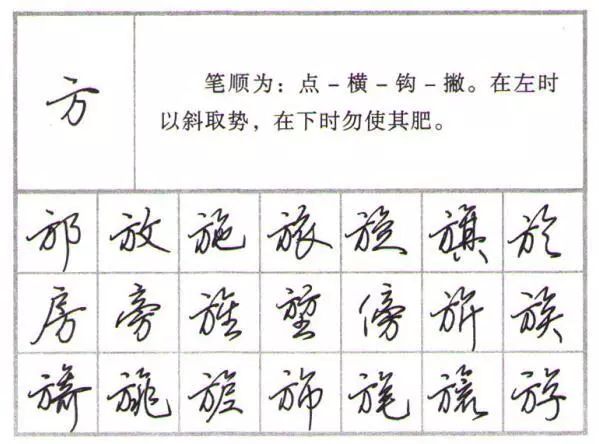 方
笔顺为：点－横－钩－撇。在左时
以斜取势，在下时勿使其肥。
邡 放 施 旅 旗 於
房 旁 旌 堃 傍 旂 族
旖 旐 旆 旄